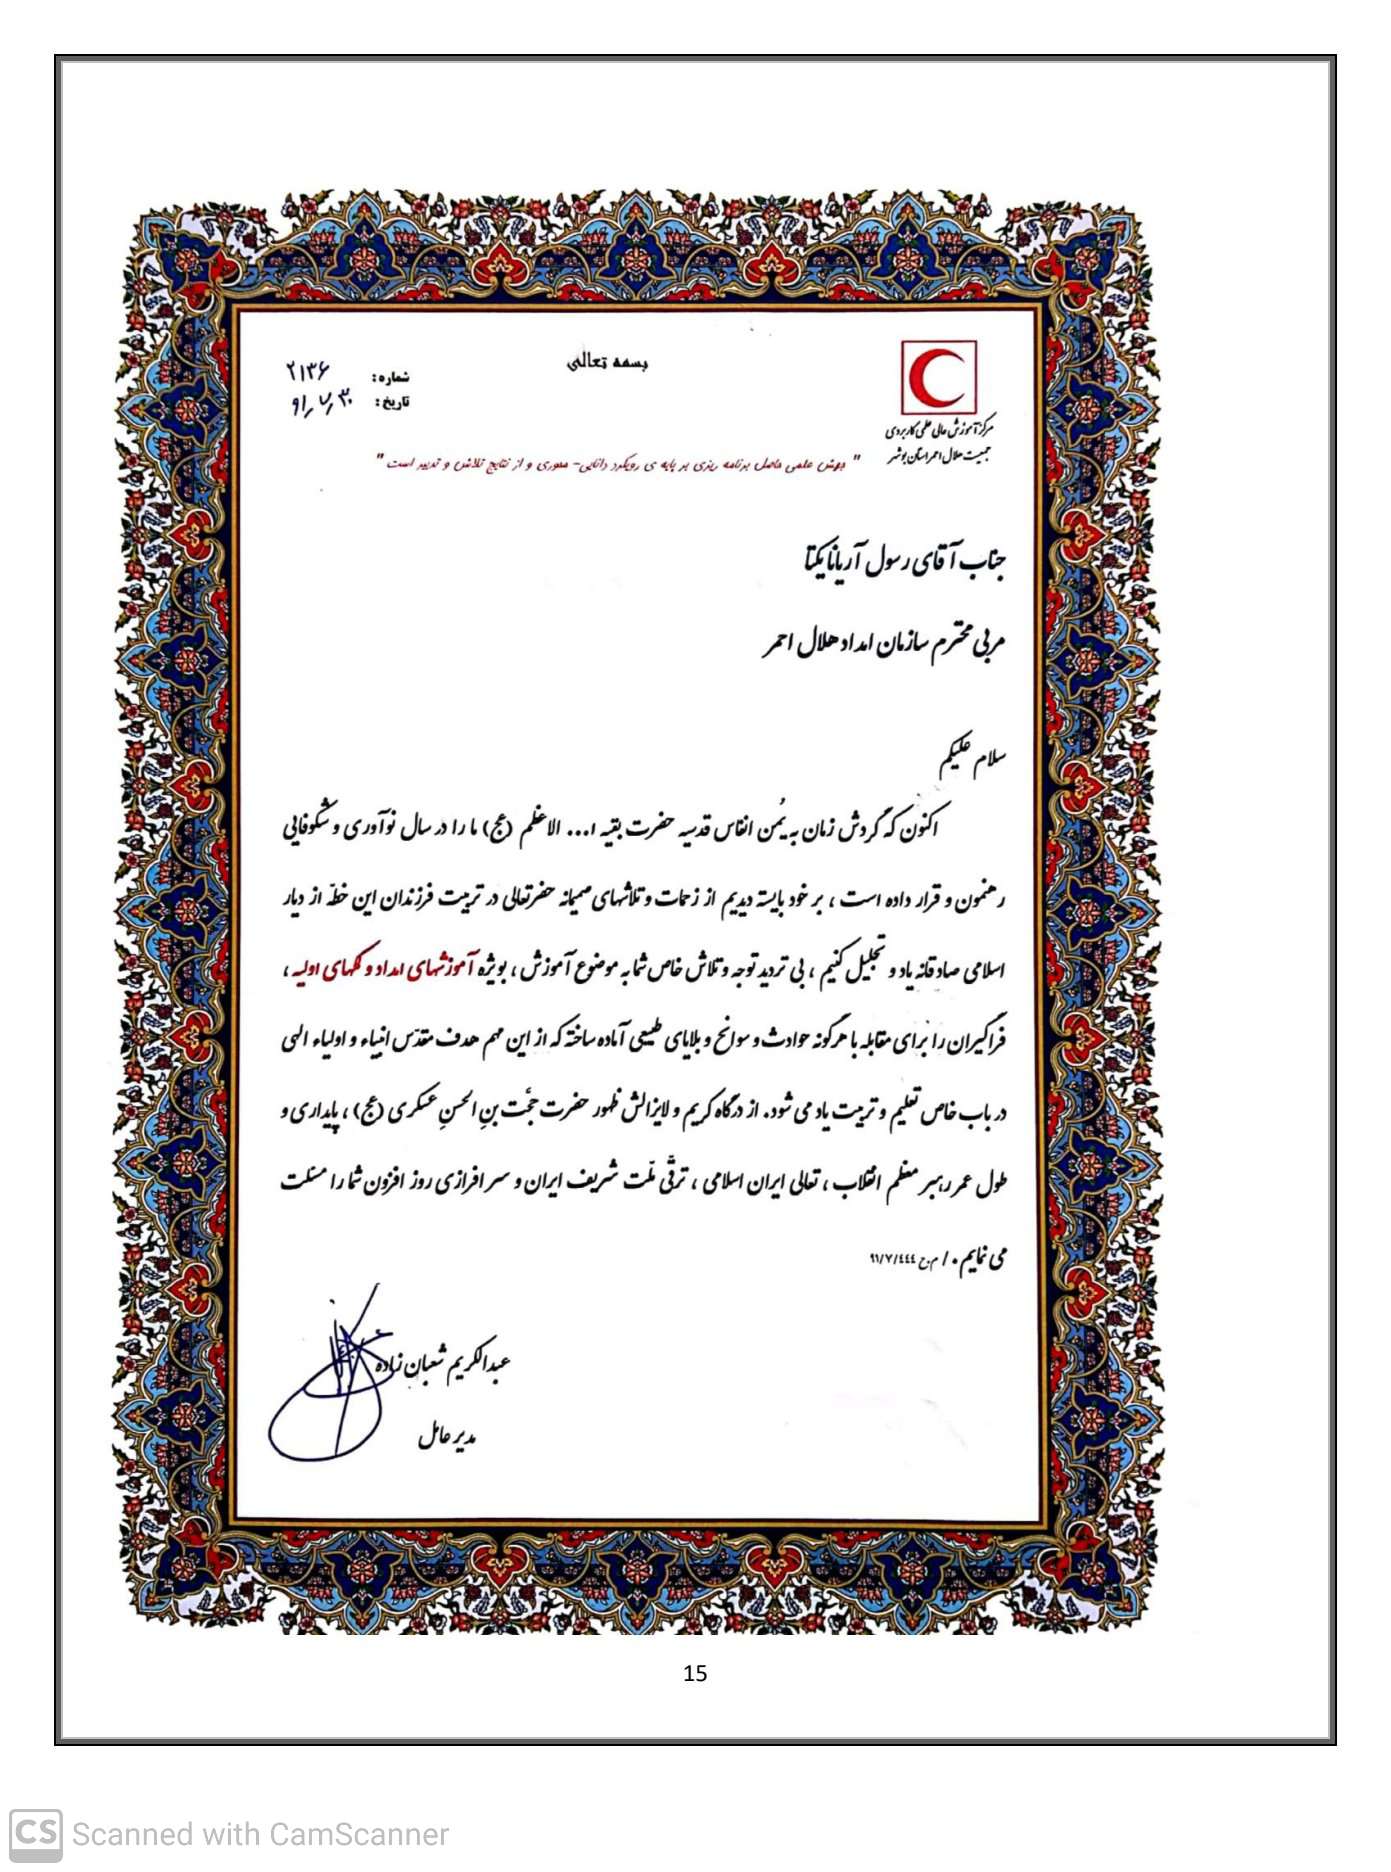 بسمه تعالی
شماره: ۲۱۳۶
تاریخ: ۹۱/۷/۳۰
مرکز آموزش عالی علمی کاربردی
جمعیت هلال احمر استان بوشهر
" جهش علمی حاصل برنامه ریزی بر پایه ی رویکرد دانایی- محوری و از نتایج تلاش و تدبیر است "
جناب آقای رسول آریانا یکتا
مربی محترم سازمان امداد هلال احمر
سلام علیکم
اکنون که گردش زمان به یُمن انفاس قدسیه حضرت بقیه ا... الاعظم (عج) ما را در سال نوآوری و شکوفایی
رهنمون و قرار داده است ، بر خود بایسته دیدیم از زحمات و تلاشهای صمیمانه حضرتعالی در تربیت فرزندان این خطّه از دیار
اسلامی صادقانه یاد و تجلیل کنیم ، بی تردید توجه و تلاش خاص شما به موضوع آموزش ، بویژه آموزشهای امداد و کمکهای اولیه ،
فراگیران را برای مقابله با هرگونه حوادث و سوانح و بلایای طبیعی آماده ساخته که از این مهم هدف مقدّس انبیاء و اولیاء الهی
در باب خاص تعلیم و تربیت یاد می شود. از درگاه کریم و لایزالش ظهور حضرت حجّت بنِ الحسنِ عسکری (عج) ، پایداری و
طول عمر رهبر معظم انقلاب ، تعالی ایران اسلامی ، ترقّی ملّت شریف ایران و سرافرازی روز افزون شما را مسئلت
می نمایم ۰ / م.ح ۹۱/۷/٤٤٤
عبدالکریم شعبان زاده
مدیر عامل
15
CS Scanned with CamScanner